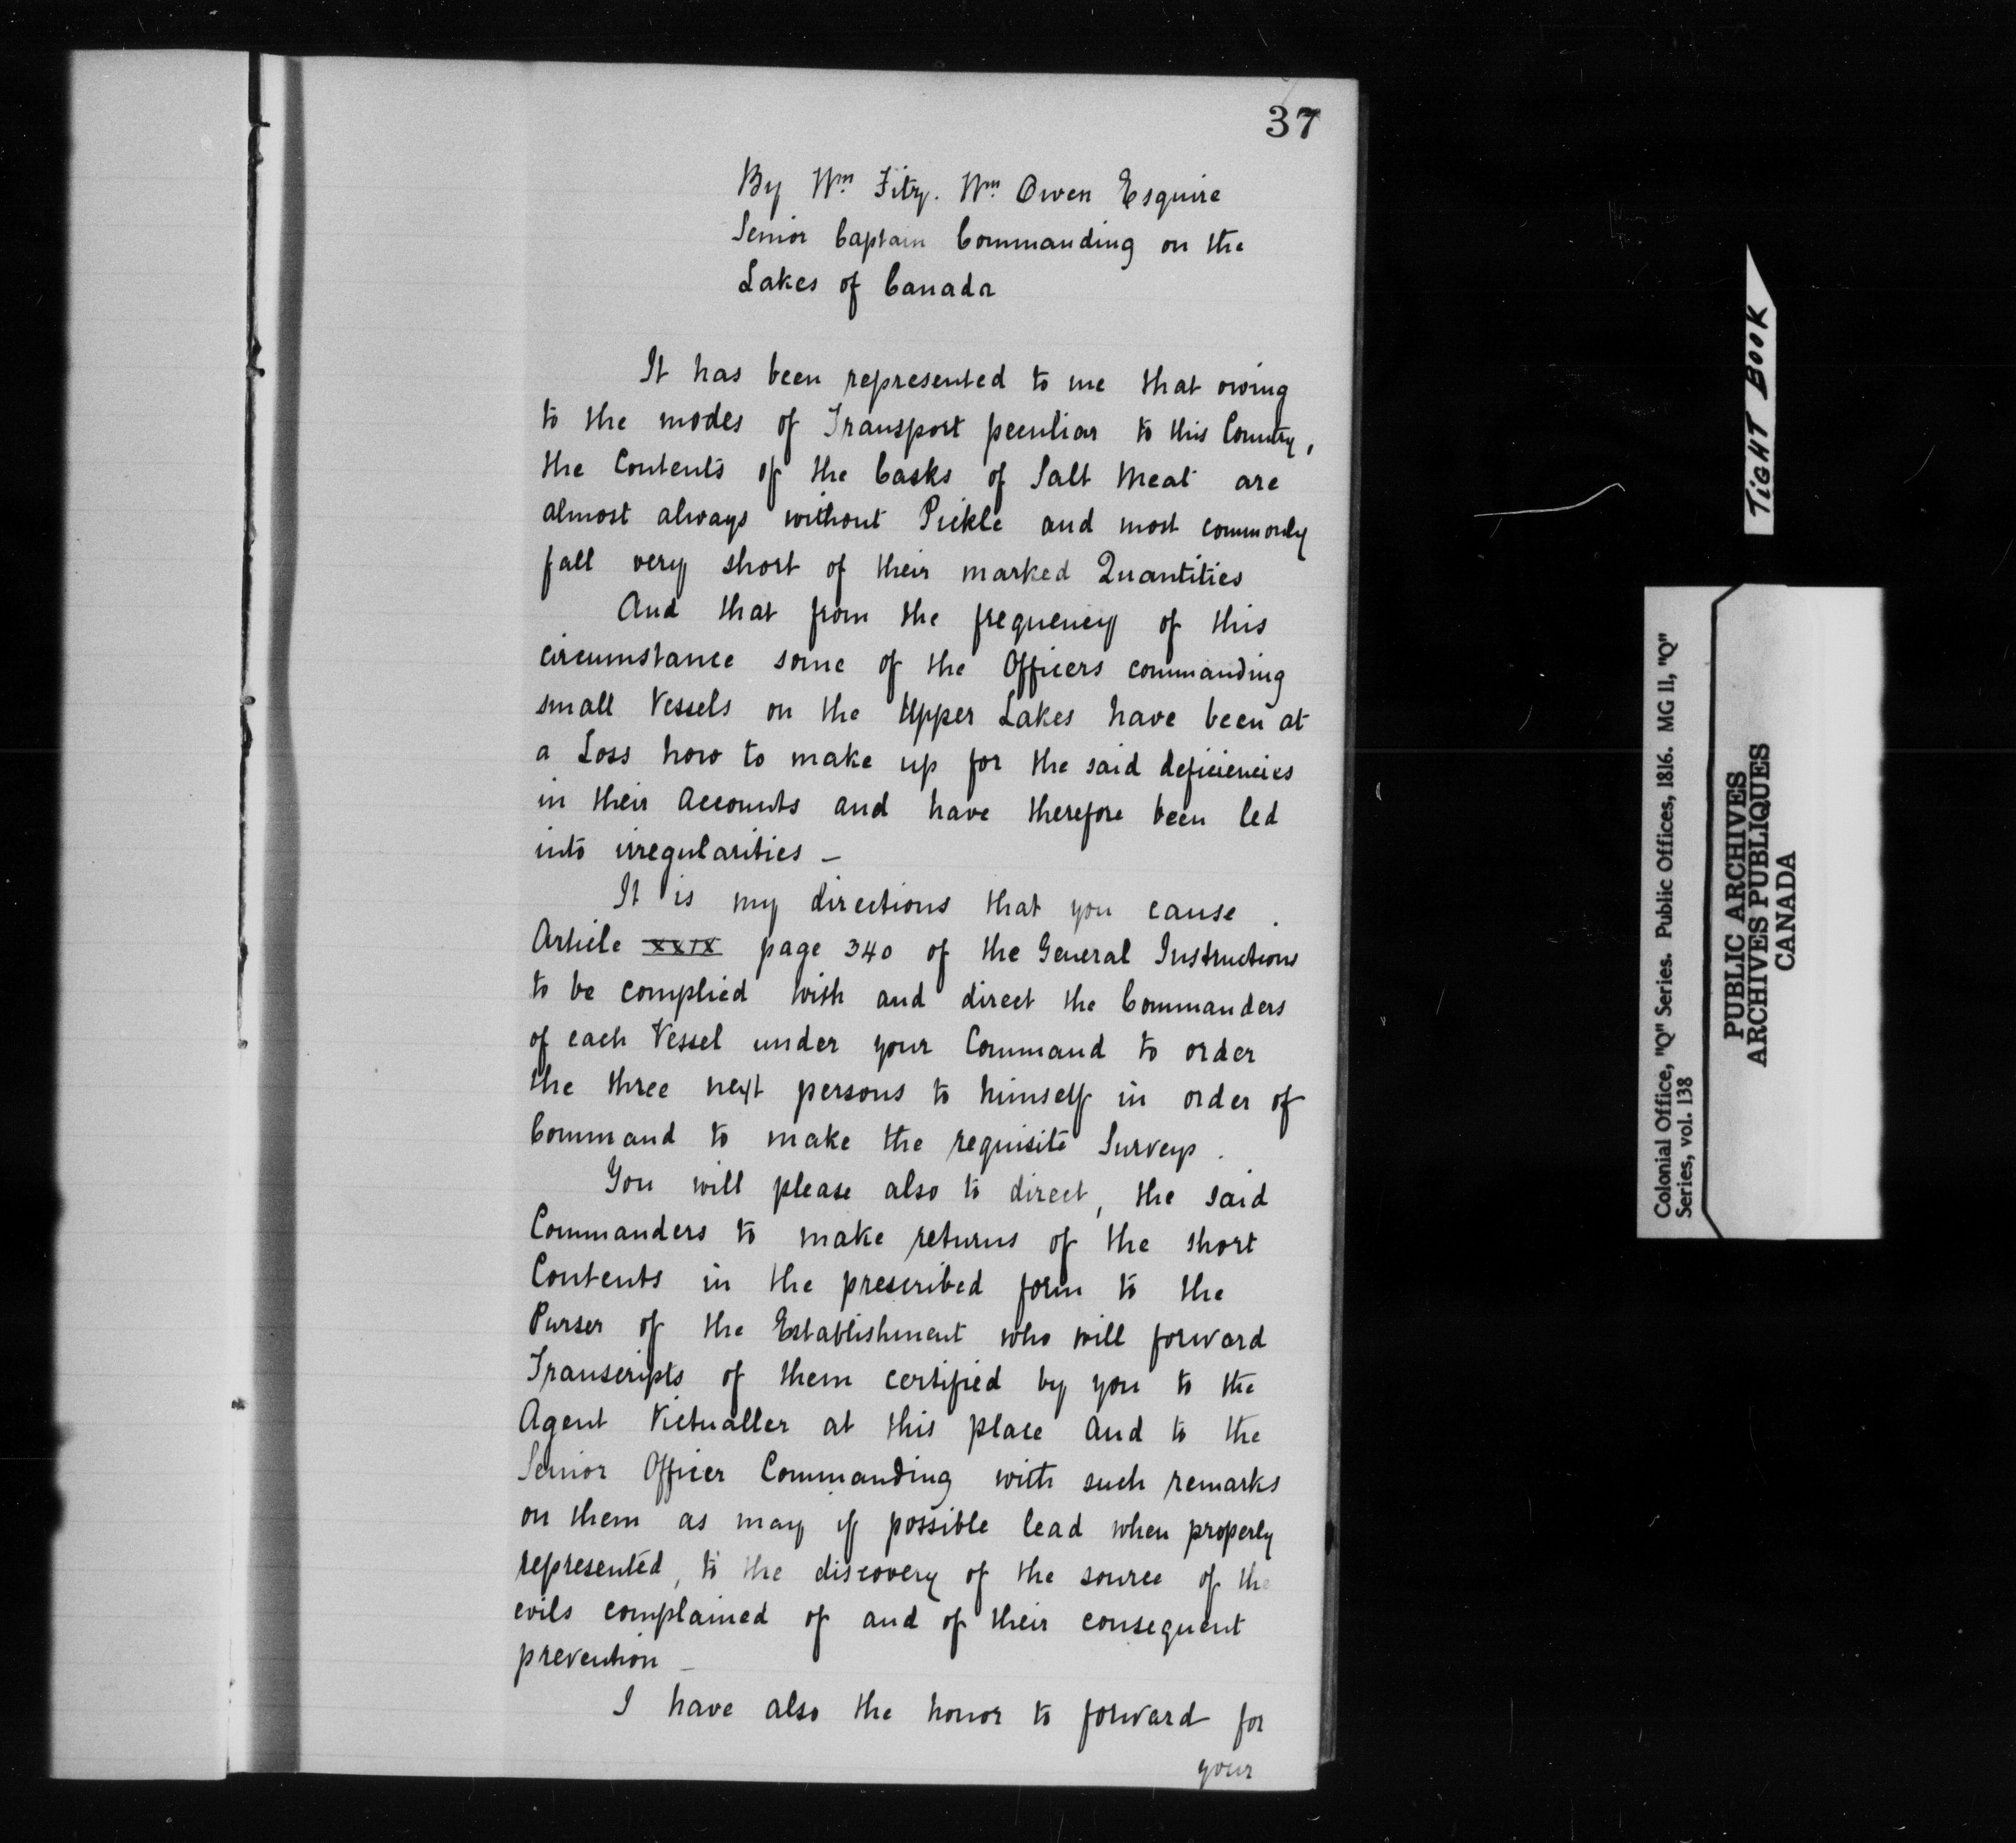 37
By Wm Fitz. Wm Owen Esquire
Senior Captain Commanding on the
Lakes of Canada
It has been represented to me that owing
to the modes of Transport peculiar to this Country,
the Contents of the Casks of Salt Meat are
almost always without Pickle and most commonly
fall very short of their marked Quantities
And that from the frequency of this
circumstance some of the Officers commanding
small Vessels on the Upper Lakes have been at
a Loss how to make up for the said deficiencies
in their Accounts and have therefore been led
into irregularities –
It is my directions that you cause
Article XXIX page 340 of the General Instructions
to be complied with and direct the Commanders
of each Vessel under your Command to order
the three next persons to himself in order of
Command to make the requisite Surveys.
You will please also to direct, the said
Commanders to make returns of the short
Contents in the prescribed form to the
Purser of the Establishment who will forward
Transcripts of them certified by you to the
Agent Victualler at this place and to the
Senior Officer Commanding with such remarks
on them as may if possible lead when properly
represented, to the discovery of the source of the
evils complained of and of their consequent
prevention –
I have also the honor to forward for
your
TIGHT BOOK
Colonial Office, "Q" Series. Public Offices, 1816. MG 11, "Q"
Series, vol. 138
PUBLIC ARCHIVES
ARCHIVES PUBLIQUES
CANADA